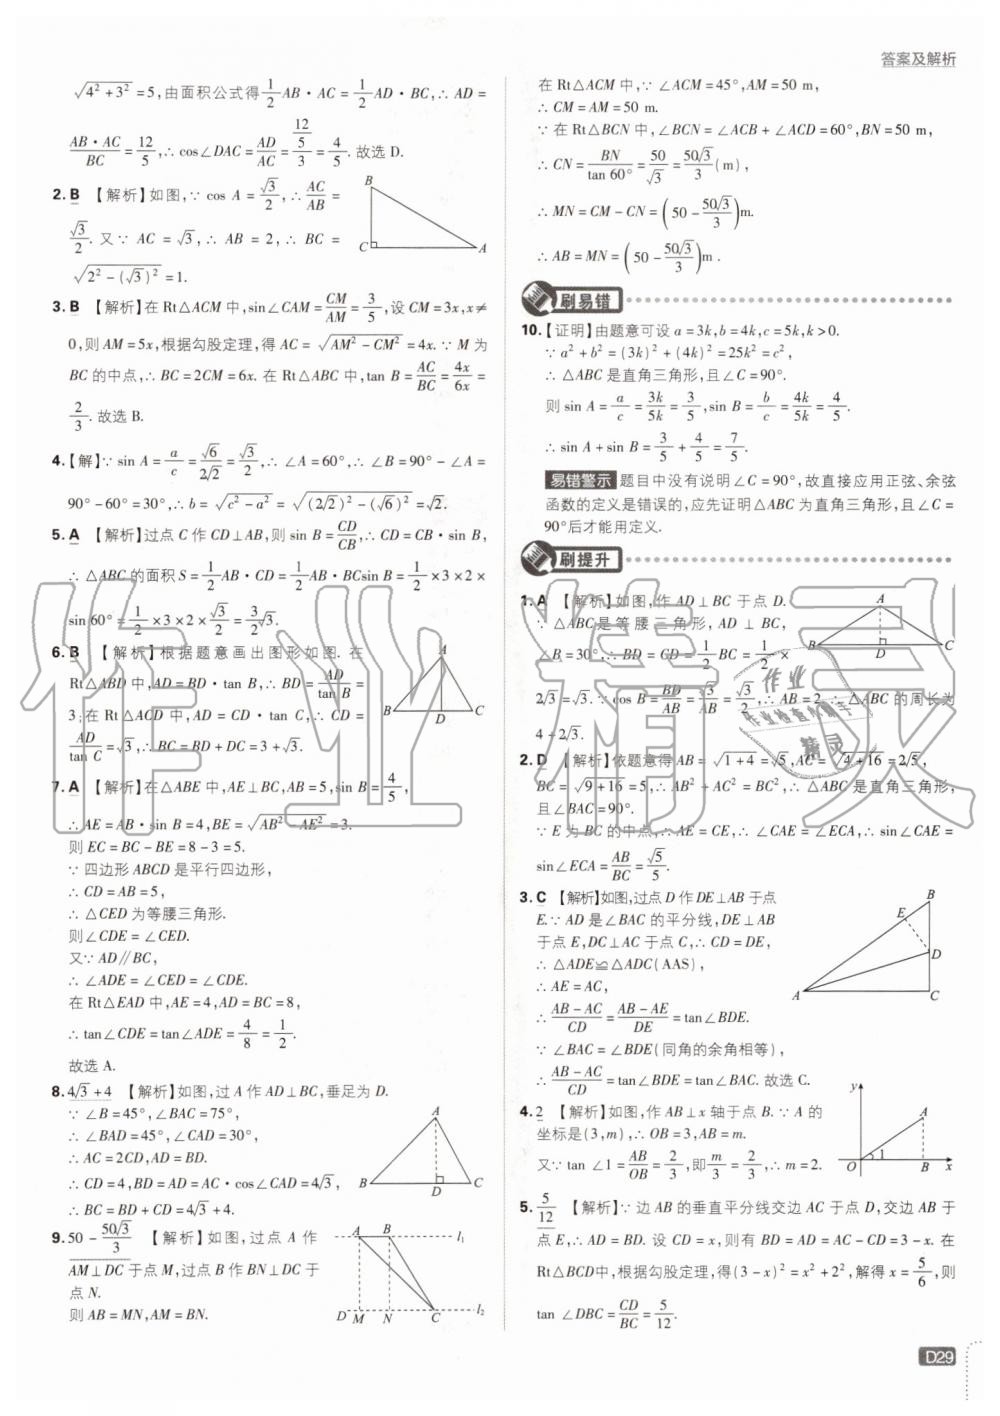 答案及解析
√(4²+3²)=5,由面积公式得1/2AB·AC=1/2AD·BC,∴AD=
AB·AC/BC=12/5,∴cos∠DAC=AD/AC=(12/5)/3=4/5.故选D.
2.B 【解析】如图,∵cos A=√3/2,∴AC/AB=
√3/2.又∵AC=√3,∴AB=2,∴BC=
√(2²-(√3)²)=1.
B
C
A
3.B 【解析】在Rt△ACM中,sin∠CAM=CM/AM=3/5,设CM=3x,x≠
0,则AM=5x,根据勾股定理,得AC=√(AM²-CM²)=4x.∵M为
BC的中点,∴BC=2CM=6x.在Rt△ABC中,tan B=AC/BC=4x/6x=
2/3.故选B.
4.【解】∵sin A=a/c=√6/2√2=√3/2,∴∠A=60°,∴∠B=90°-∠A=
90°-60°=30°,∴b=√(c²-a²)=√((2√2)²-(√6)²)=√2.
5.A 【解析】过点C作CD⊥AB,则sin B=CD/CB,∴CD=CB·sin B,
∴△ABC的面积S=1/2AB·CD=1/2AB·BCsin B=1/2×3×2×
sin 60°=1/2×3×2×√3/2=3/2√3.
6.B 【解析】根据题意画出图形如图.在
Rt△ABD中,AD=BD·tan B,∴BD=AD/tan B=
3;在Rt△ACD中,AD=CD·tan C,∴CD=
AD/tan C=√3,∴BC=BD+DC=3+√3.
A
B
D
C
7.A 【解析】在△ABE中,AE⊥BC,AB=5,sin B=4/5,
∴AE=AB·sin B=4,BE=√(AB²-AE²)=3.
则EC=BC-BE=8-3=5.
∵四边形ABCD是平行四边形,
∴CD=AB=5,
∴△CED为等腰三角形.
则∠CDE=∠CED.
又∵AD∥BC,
∴∠ADE=∠CED=∠CDE.
在Rt△EAD中,AE=4,AD=BC=8,
∴tan∠CDE=tan∠ADE=4/8=1/2.
故选A.
8.4√3+4 【解析】如图,过A作AD⊥BC,垂足为D.
∵∠B=45°,∠BAC=75°,
∴∠BAD=45°,∠CAD=30°,
∴AC=2CD,AD=BD.
∴CD=4,BD=AD=AC·cos∠CAD=4√3,
∴BC=BD+CD=4√3+4.
A
B
D
C
9.50-50√3/3 【解析】如图,过点A作
AM⊥DC于点M,过点B作BN⊥DC于
点N.
则AB=MN,AM=BN.
A B l₁
D M N C l₂
在Rt△ACM中,∵∠ACM=45°,AM=50 m,
∴CM=AM=50 m.
∵在Rt△BCN中,∠BCN=∠ACB+∠ACD=60°,BN=50 m,
∴CN=BN/tan 60°=50/√3=50√3/3(m),
∴MN=CM-CN=(50-50√3/3)m.
∴AB=MN=(50-50√3/3)m.
刷易错
10.【证明】由题意可设a=3k,b=4k,c=5k,k>0.
∵a²+b²=(3k)²+(4k)²=25k²=c²,
∴△ABC是直角三角形,且∠C=90°.
则sin A=a/c=3k/5k=3/5,sin B=b/c=4k/5k=4/5.
∴sin A+sin B=3/5+4/5=7/5.
易错警示 题目中没有说明∠C=90°,故直接应用正弦、余弦
函数的定义是错误的,应先证明△ABC为直角三角形,且∠C=
90°后才能用定义.
刷提升
1.A 【解析】如图,作AD⊥BC于点D.
∵△ABC是等腰三角形,AD⊥BC,
∠B=30°,∴BD=CD=1/2BC=1/2×
2√3=√3.∵cos B=BD/AB=√3/AB=√3/2,∴AB=2,∴△ABC的周长为
4+2√3.
A
B
D
C
2.D 【解析】依题意得AB=√(1+4)=√5,AC=√(4+16)=2√5,
BC=√(9+16)=5,∴AB²+AC²=BC²,∴△ABC是直角三角形,
且∠BAC=90°.
∵E为BC的中点,∴AE=CE,∴∠CAE=∠ECA,∴sin∠CAE=
sin∠ECA=AB/BC=√5/5.
3.C 【解析】如图,过点D作DE⊥AB于点
E.∵AD是∠BAC的平分线,DE⊥AB
于点E,DC⊥AC于点C,∴CD=DE,
∴△ADE≌△ADC(AAS),
∴AE=AC,
∴AB-AC/CD=AB-AE/DE=tan∠BDE.
∵∠BAC=∠BDE(同角的余角相等),
∴AB-AC/CD=tan∠BDE=tan∠BAC.故选C.
B
E
D
A
C
4.2 【解析】如图,作AB⊥x轴于点B.∵A的
坐标是(3,m),∴OB=3,AB=m.
又∵tan ∠1=AB/OB=2/3,即m/3=2/3,∴m=2.
y
A
1
O
B
x
5.5/12 【解析】∵边AB的垂直平分线交边AC于点D,交边AB于
点E,∴AD=BD.设CD=x,则有BD=AD=AC-CD=3-x.在
Rt△BCD中,根据勾股定理,得(3-x)²=x²+2²,解得x=5/6,则
tan ∠DBC=CD/BC=5/12.
D29
作业精灵
作业
作业检查小助手
精灵